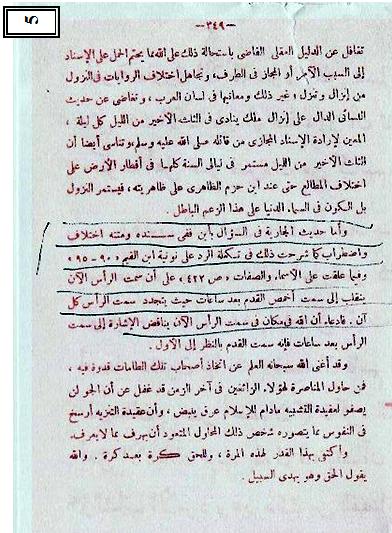 — ٣٤٩ —
تغافل عن الدليل العقلى القاضى باستحالة ذلك على الله مما يحتم الحمل على الإسناد
إلى السبب الآمر أو المجاز فى الطرف، وتجاهل اختلاف الروايات فى النزول
من إنزال وتنزل؛ غير ذلك ومعانيها فى لسان العرب، وتغاضى عن حديث
النسائى الدال على إنزال ملك ينادى فى الثلث الأخير من الليل كل ليلة،
المعين لإرادة الإسناد المجازى من قائله صلى الله عليه وسلم، وتناسى أيضا أن
الثلث الأخير من الليل مستمر فى ليالى السنة كلها فى أقطار الأرض على
اختلاف المطالع حتى عند ابن حزم الظاهرى على ظاهريته، فيستمر النزول
بل السكون فى السماء الدنيا على هذا الزعم الباطل
وأما حديث الجارية فى السؤال بأين ففى سنده ومتنه اختلاف
واضطراب كما شرحت ذلك فى تكملة الرد على نونية ابن القيم (٩٠-٩٥)
وفيما علقت على الأسماء والصفات (ص ٤٢٢) على أن سمت الرأس الآن
ينقلب إلى سمت أخمص القدم بعد ساعات حيث يتجدد سمت الرأس كل
آن. فادعاء أن الله فى مكان فى سمت الرأس الآن يناقض الإشارة إلى سمت
الرأس بعد ساعات فإنه سمت القدم بالنظر إلى الأول.
وقد أغنى الله سبحانه العلم عن اتخاذ أصحاب تلك الطامات قدوة فيه،
فمن حاول المناصرة لهؤلاء الزائغين فى آخر الزمن قد غفل عن أن الجو لن
يصفو لعقيدة التشبيه مادام للإسلام عرق ينبض، وأن عقيدة التنزيه أرسخ
فى النفوس مما يتصوره شخص ذلك المحاول المتعود أن يهرف بما لا يعرف.
وأكتفى بهذا القدر لهذه المرة، وللحق كرة بعد كرة. والله
يقول الحق وهو يهدى السبيل.